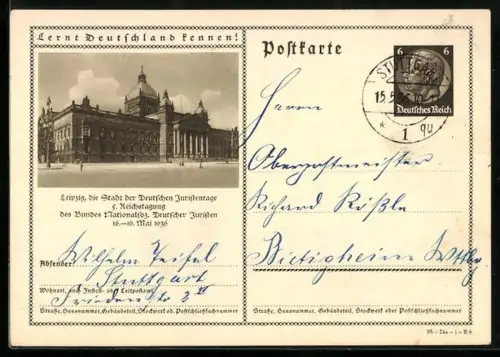 Lernt Deutschland kennen!
Leipzig, die Stadt der Deutschen Juristentage
5. Reichstagung
des Bundes Nationalsoz. Deutscher Juristen
16.—19. Mai 1936
Absender: Wilhelm
Stuttgart
Wohnort, auch Zustell- oder Leitpostamt
Straße, Hausnummer, Gebäudeteil, Stockwerk od. Postschließfachnummer
Postkarte
6 6
Deutsches Reich
STUTTGART
15.5.
1
Herrn
Oberpostmeister
Richard Rößle
Bietigheim Wttbg.
Straße, Hausnummer, Gebäudeteil, Stockwerk oder Postschließfachnummer